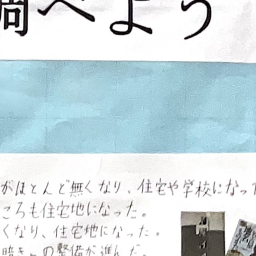 調べよう
がほとんど無くなり、住宅や学校になっ
ころも住宅地になった。
くなり、住宅地になった。
暗きょの整備が進んだ。